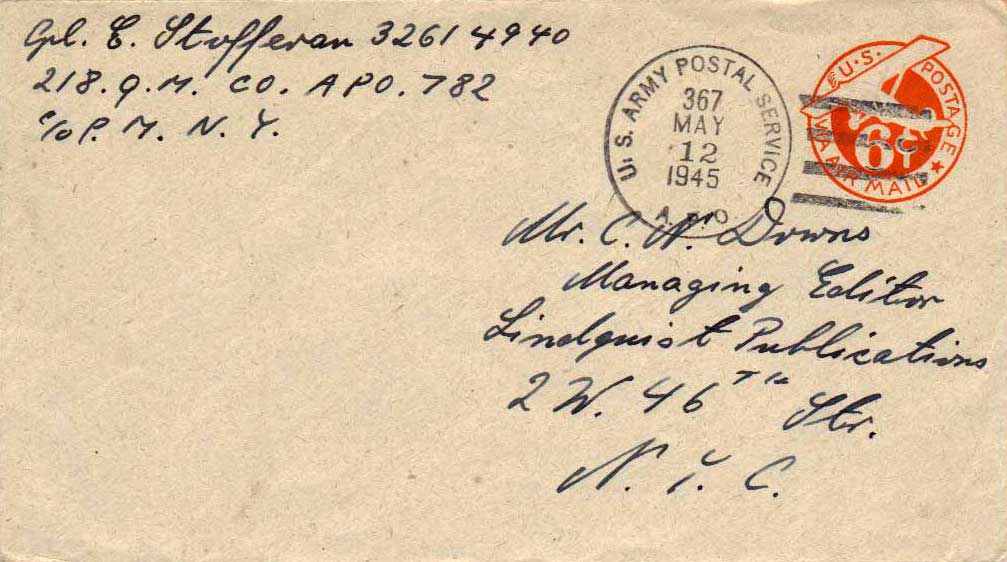 Cpl. E. Stofferan 32614940
218. Q.M. CO. APO. 782
c/o P. M. N. Y.
U. S. ARMY POSTAL SERVICE
367
MAY
12
1945
A.P.O.
U.S. POSTAGE
6¢
VIA AIR MAIL
Mr. C. N. Downs
Managing Editor
Lindquist Publications
2 W. 46TH Str.
N. Y. C.